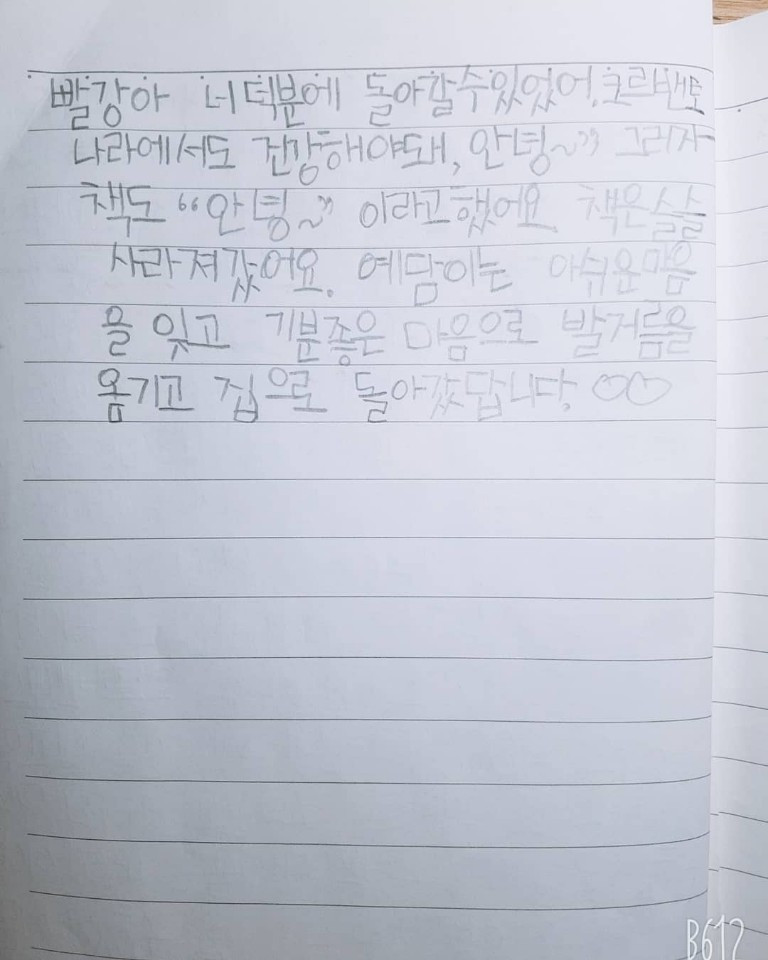 빨강아 너 덕분에 돌아갈수있었어. 크르벤토
나라에서도 건강해야돼, 안녕~” 그러자
책도 “안녕~” 이라고했어요. 책은슬슬
사라져갔어요. 예담이는 아쉬운마음
을 잊고 기분좋은 마음으로 발거름을
옴기고 집으로 돌아갔답니다. ♡♡
B612